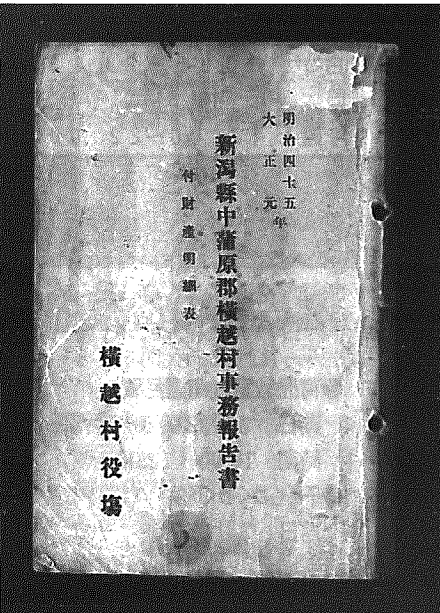 明治四十五
大正元年
新潟縣中蒲原郡横越村事務報告書
付財產明細表
横越村役塲